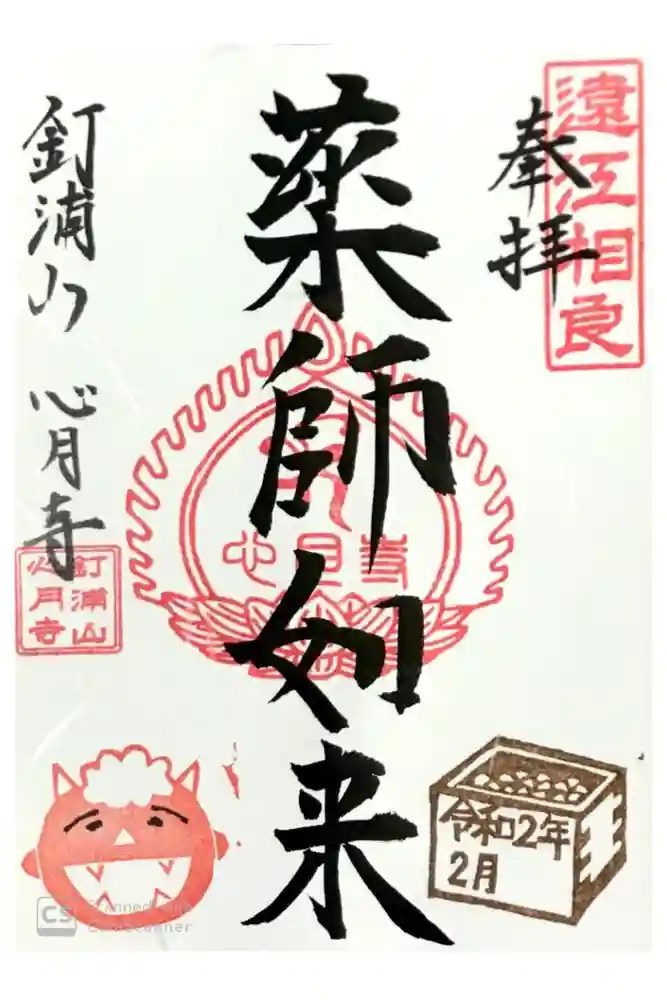 遠江相良
奉拝
薬師如来
心月寺
釘浦山 心月寺
釘浦山
心月寺
令和2年
2月
CS Scanned with
CamScanner